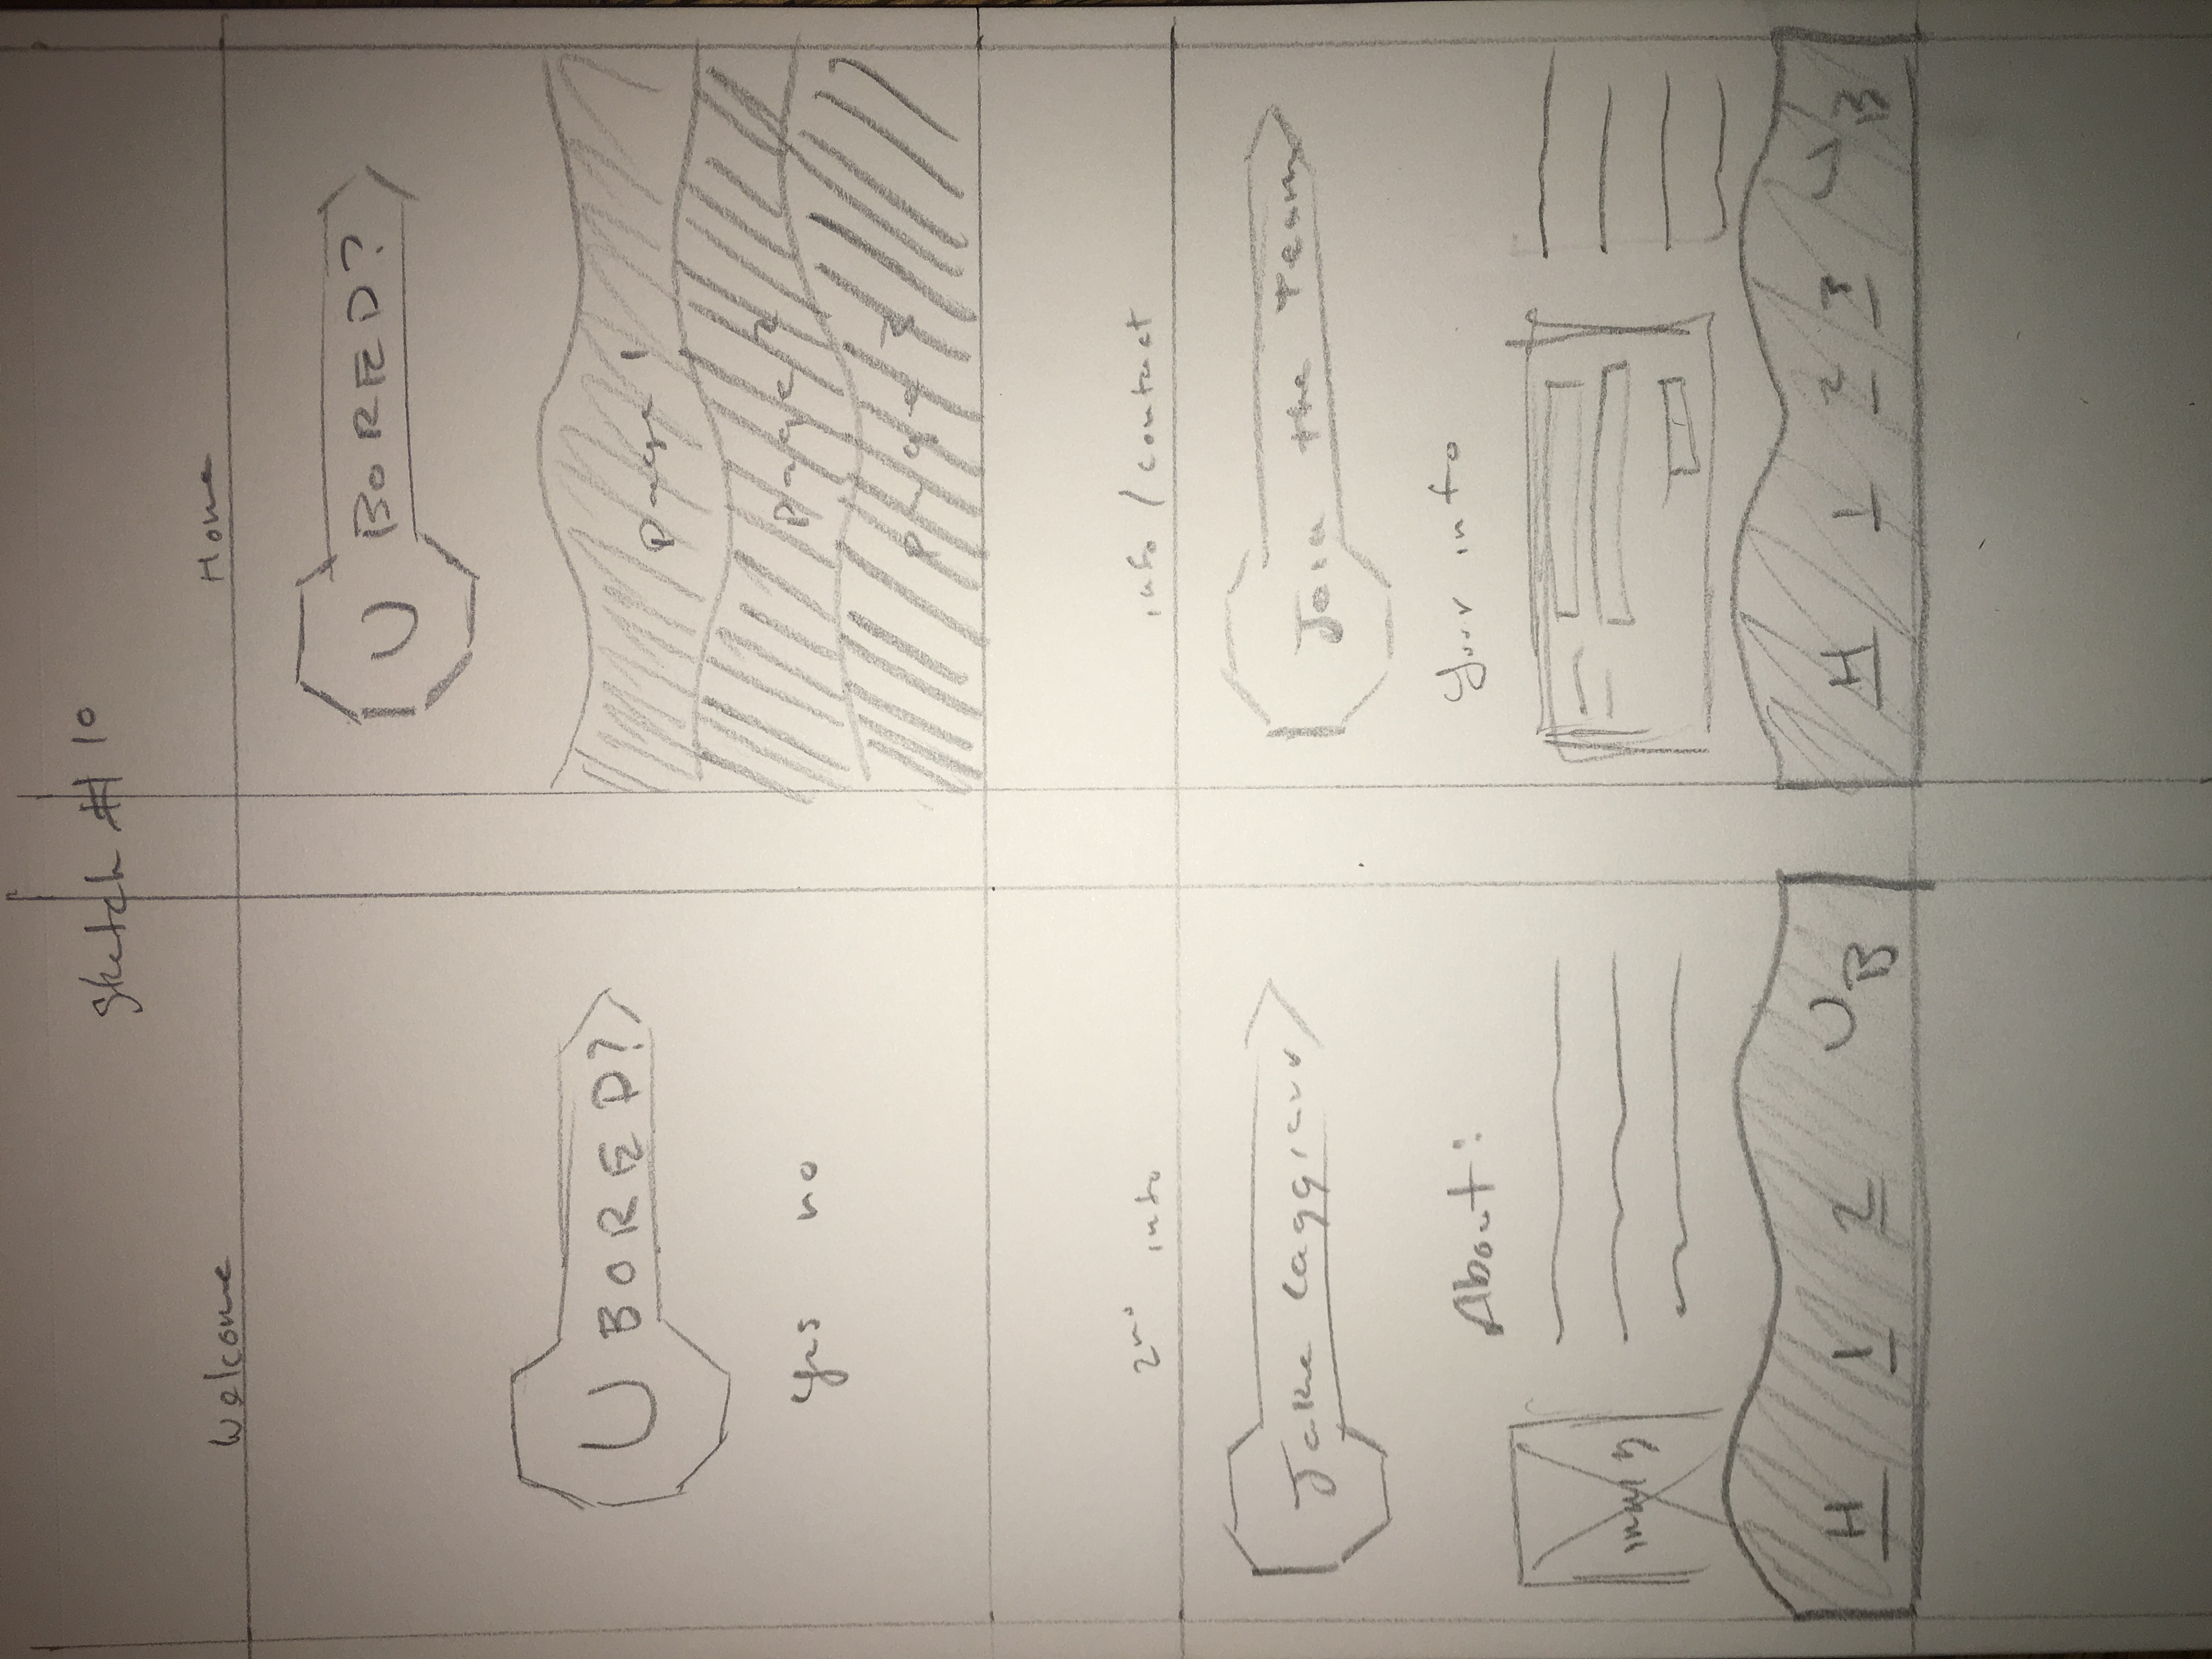 Sketch # 10
Welcome
U BORED?
yes no
Home
U BORED?
page 1
page 2
page 3
2nd info
Jake
About:
H 1 2 UB
info / contact
Join the Team
Your info
H 1 2 3 UB